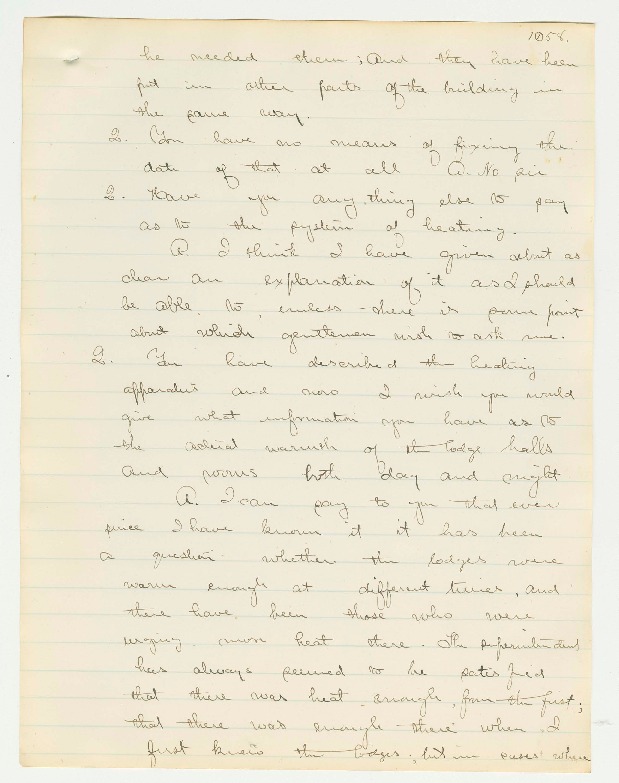 1058.
he needed them; And they have been
put in other parts of the building in
the same way.
Q. You have no means of fixing the
date of that at all A. No sir
Q. Have you any thing else to say
as to the system of heating.
A. I think I have given about as
clear an explanation of it as I should
be able to, unless there is some point
about which gentlemen wish to ask me.
Q. You have described the heating
apparatus and now I wish you would
give what information you have as to
the actual warmth of the lodge halls
and rooms both day and night
A. I can say to you that ever
since I have known it it has been
a question whether the lodges were
warm enough at different times, and
there have been those who were
urging more heat there. The superintendent
has always seemed to be satisfied
that there was heat enough, from the first;
that there was enough there when I
first knew the lodges; but in cases where